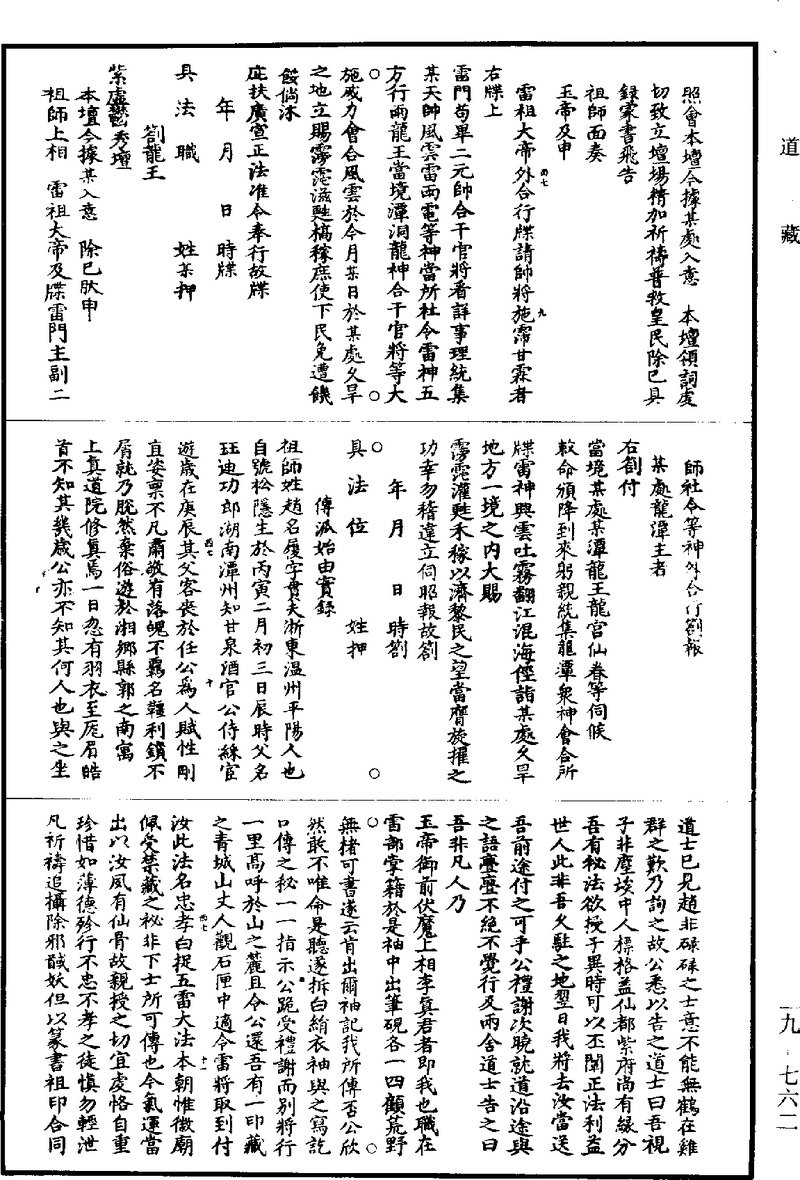 道藏
照會本壇今據某處入意　本壇領詞虔
切致立壇場精加祈禱普救皇民除已具
錄篆書飛告
祖師面奏
玉帝及申
雷祖大帝外合行牒請師將施霈甘霖者
右牒上
雷門苟畢二元帥合干官將看詳事理統集
某天帥風雲雷雨電等神當所社令雷神五
方行雨龍王當境潭洞龍神合干官將等大
施威力會合風雲於今月某日於某處久旱
之地立賜霶霑滋甦槁稼庶使下民免遭饑
餒倘沐
庇扶廣宣正法准令奉行故牒
年　月　日　時牒
具　法　職　姓某押
劄龍王
紫虛鬱秀壇
本壇今據某入意　除已狀申
祖師上相　雷祖大帝及牒雷門主副二
師社令等神外合行劄報
某處龍潭主者
右劄付
當境某處某潭龍王龍宮仙眷等伺候
敕命頒降到來躬親統集龍潭衆神會合所
牒雷神興雲吐霧翻江混海徑詣某處久旱
地方一境之內大賜
霶霑灌甦禾稼以濟黎民之望當膺旋擢之
功幸勿稽違立伺昭報故劄
年　月　日　時劄
具　法　位　姓押
傳派始由實錄
祖師姓趙名履字貫夫浙東溫州平陽人也
自號松隱生於丙寅二月初三日辰時父名
珏迪功郎湖南潭州知甘泉酒官公侍綵宦
遊歲在庚辰其父客喪於任公爲人賦性剛
直姿稟不凡肅敬有落魄不羈名韁利鎖不
屑就乃脫然棄俗遊於湘鄉縣郭之南寓
上真道院修真焉一日忽有羽衣至厖眉皓
首不知其幾歲公亦不知其何人也與之坐
道士已見趙非碌碌之士意不能無鶴在雞
群之歎乃詢之故公悉以告之道士曰吾視
子非塵埃中人標格益仙都紫府尚有緣分
吾有秘法欲授子異時可以丕闡正法利益
世人此非吾久駐之地翌日我將去汝當送
吾前途付之可乎公禮謝次曉就道沿途與
之語亹亹不絕不覺行及兩舍道士告之曰
吾非凡人乃
玉帝御前伏魔上相李真君者即我也職在
雷部掌籍於是袖中出筆硯各一四顧荒野
無楮可書遂云肯出爾袖記我所傳否公欣
然敢不唯命是聽遂拆白絹衣袖與之寫訖
口傳之秘一一指示公跪受禮謝而別將行
一里高呼於山之麓且令公還吾有一印藏
之青城山丈人觀石匣中適令雷將取到付
汝此法名忠孝白捉五雷大法本朝惟徽廟
佩受禁藏之秘非下士所可傳也今氣運當
出以汝夙有仙骨故親授之切宜虔恪自重
珍惜如薄德殄行不忠不孝之徒慎勿輕泄
凡祈禱追攝除邪馘妖但以篆書祖印合同
九-七六二